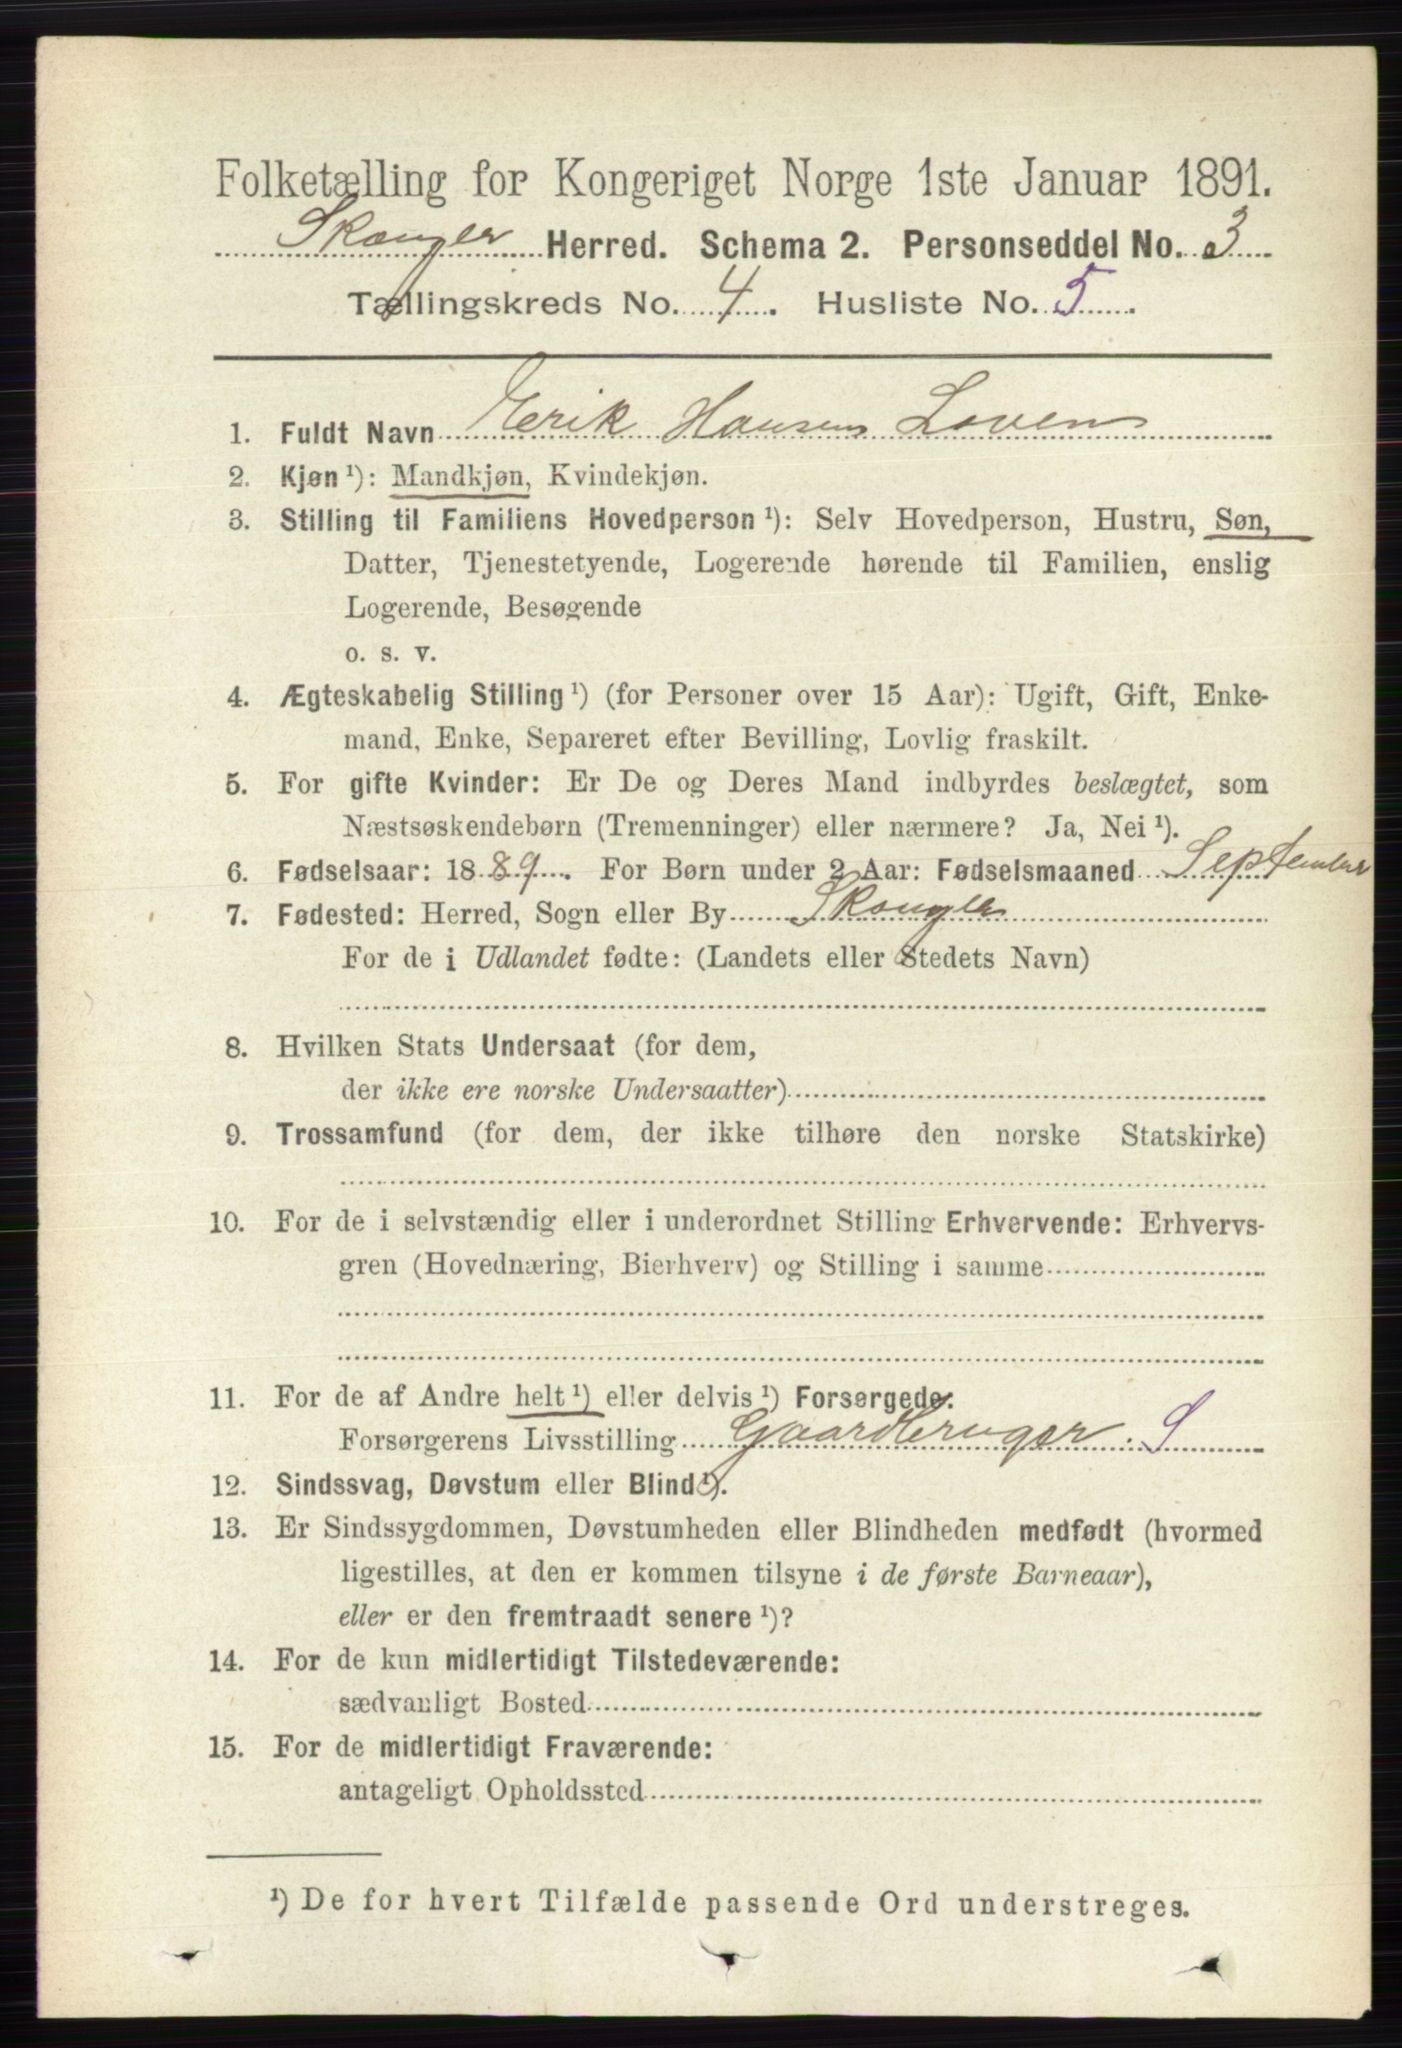 Folketælling for Kongeriget Norge 1ste Januar 1891.
Skouger Herred. Schema 2. Personseddel No. 3
Tællingskreds No. 4. Husliste No. 5
1. Fuldt Navn Erik Hansen Loven
2. Kjøn ¹): Mandkjøn, Kvindekjøn.
3. Stilling til Familiens Hovedperson ¹): Selv Hovedperson, Hustru, Søn,
Datter, Tjenestetyende, Logerende hørende til Familien, enslig
Logerende, Besøgende
o. s. v.
4. Ægteskabelig Stilling ¹) (for Personer over 15 Aar): Ugift, Gift, Enke-
mand, Enke, Separeret efter Bevilling, Lovlig fraskilt.
5. For gifte Kvinder: Er De og Deres Mand indbyrdes beslægtet, som
Næstsøskendebørn (Tremenninger) eller nærmere? Ja, Nei ¹).
6. Fødselsaar: 1889. For Børn under 2 Aar: Fødselsmaaned September
7. Fødested: Herred, Sogn eller By Skouger
For de i Udlandet fødte: (Landets eller Stedets Navn)
8. Hvilken Stats Undersaat (for dem,
der ikke ere norske Undersaatter)
9. Trossamfund (for dem, der ikke tilhøre den norske Statskirke)
10. For de i selvstændig eller i underordnet Stilling Erhvervende: Erhvervs-
gren (Hovednæring, Bierhverv) og Stilling i samme
11. For de af Andre helt ¹) eller delvis ¹) Forsørgede:
Forsørgerens Livsstilling Gaardbruger. S
12. Sindssvag, Døvstum eller Blind ¹).
13. Er Sindssygdommen, Døvstumheden eller Blindheden medfødt (hvormed
ligestilles, at den er kommen tilsyne i de første Barneaar),
eller er den fremtraadt senere ¹)?
14. For de kun midlertidigt Tilstedeværende:
sædvanligt Bosted
15. For de midlertidigt Fraværende:
antageligt Opholdssted
¹) De for hvert Tilfælde passende Ord understreges.